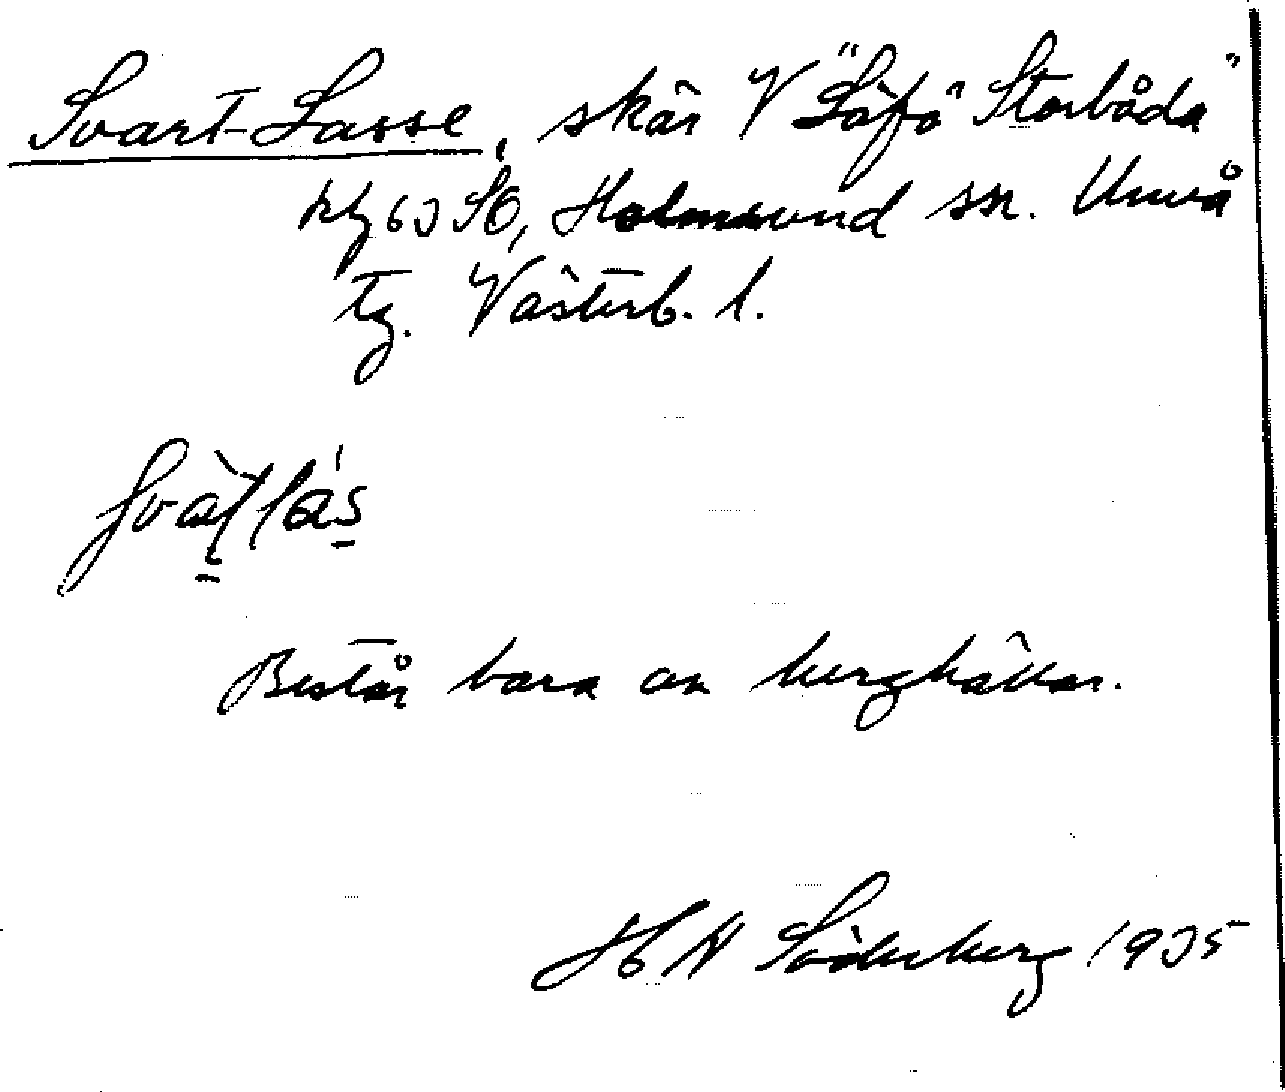 Svart-Lasse, skär V "Löfö" Storbåda"
kbl 63 SO, Holmsund sn. Umeå
tg. Västerb. l.
Består bara av berghällar.
H N Söderberg 1935